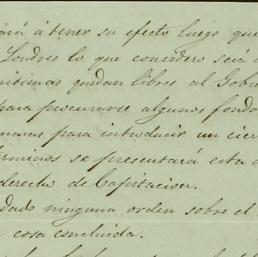 á tener su efecto luego que
Londres lo que considero será
quedan libres al Gobie
para procurarse algunos fondo
para introducir un cier
se presentará esta
derecho de Capitacion.
dado ninguna orden sobre el
cosa concluida.